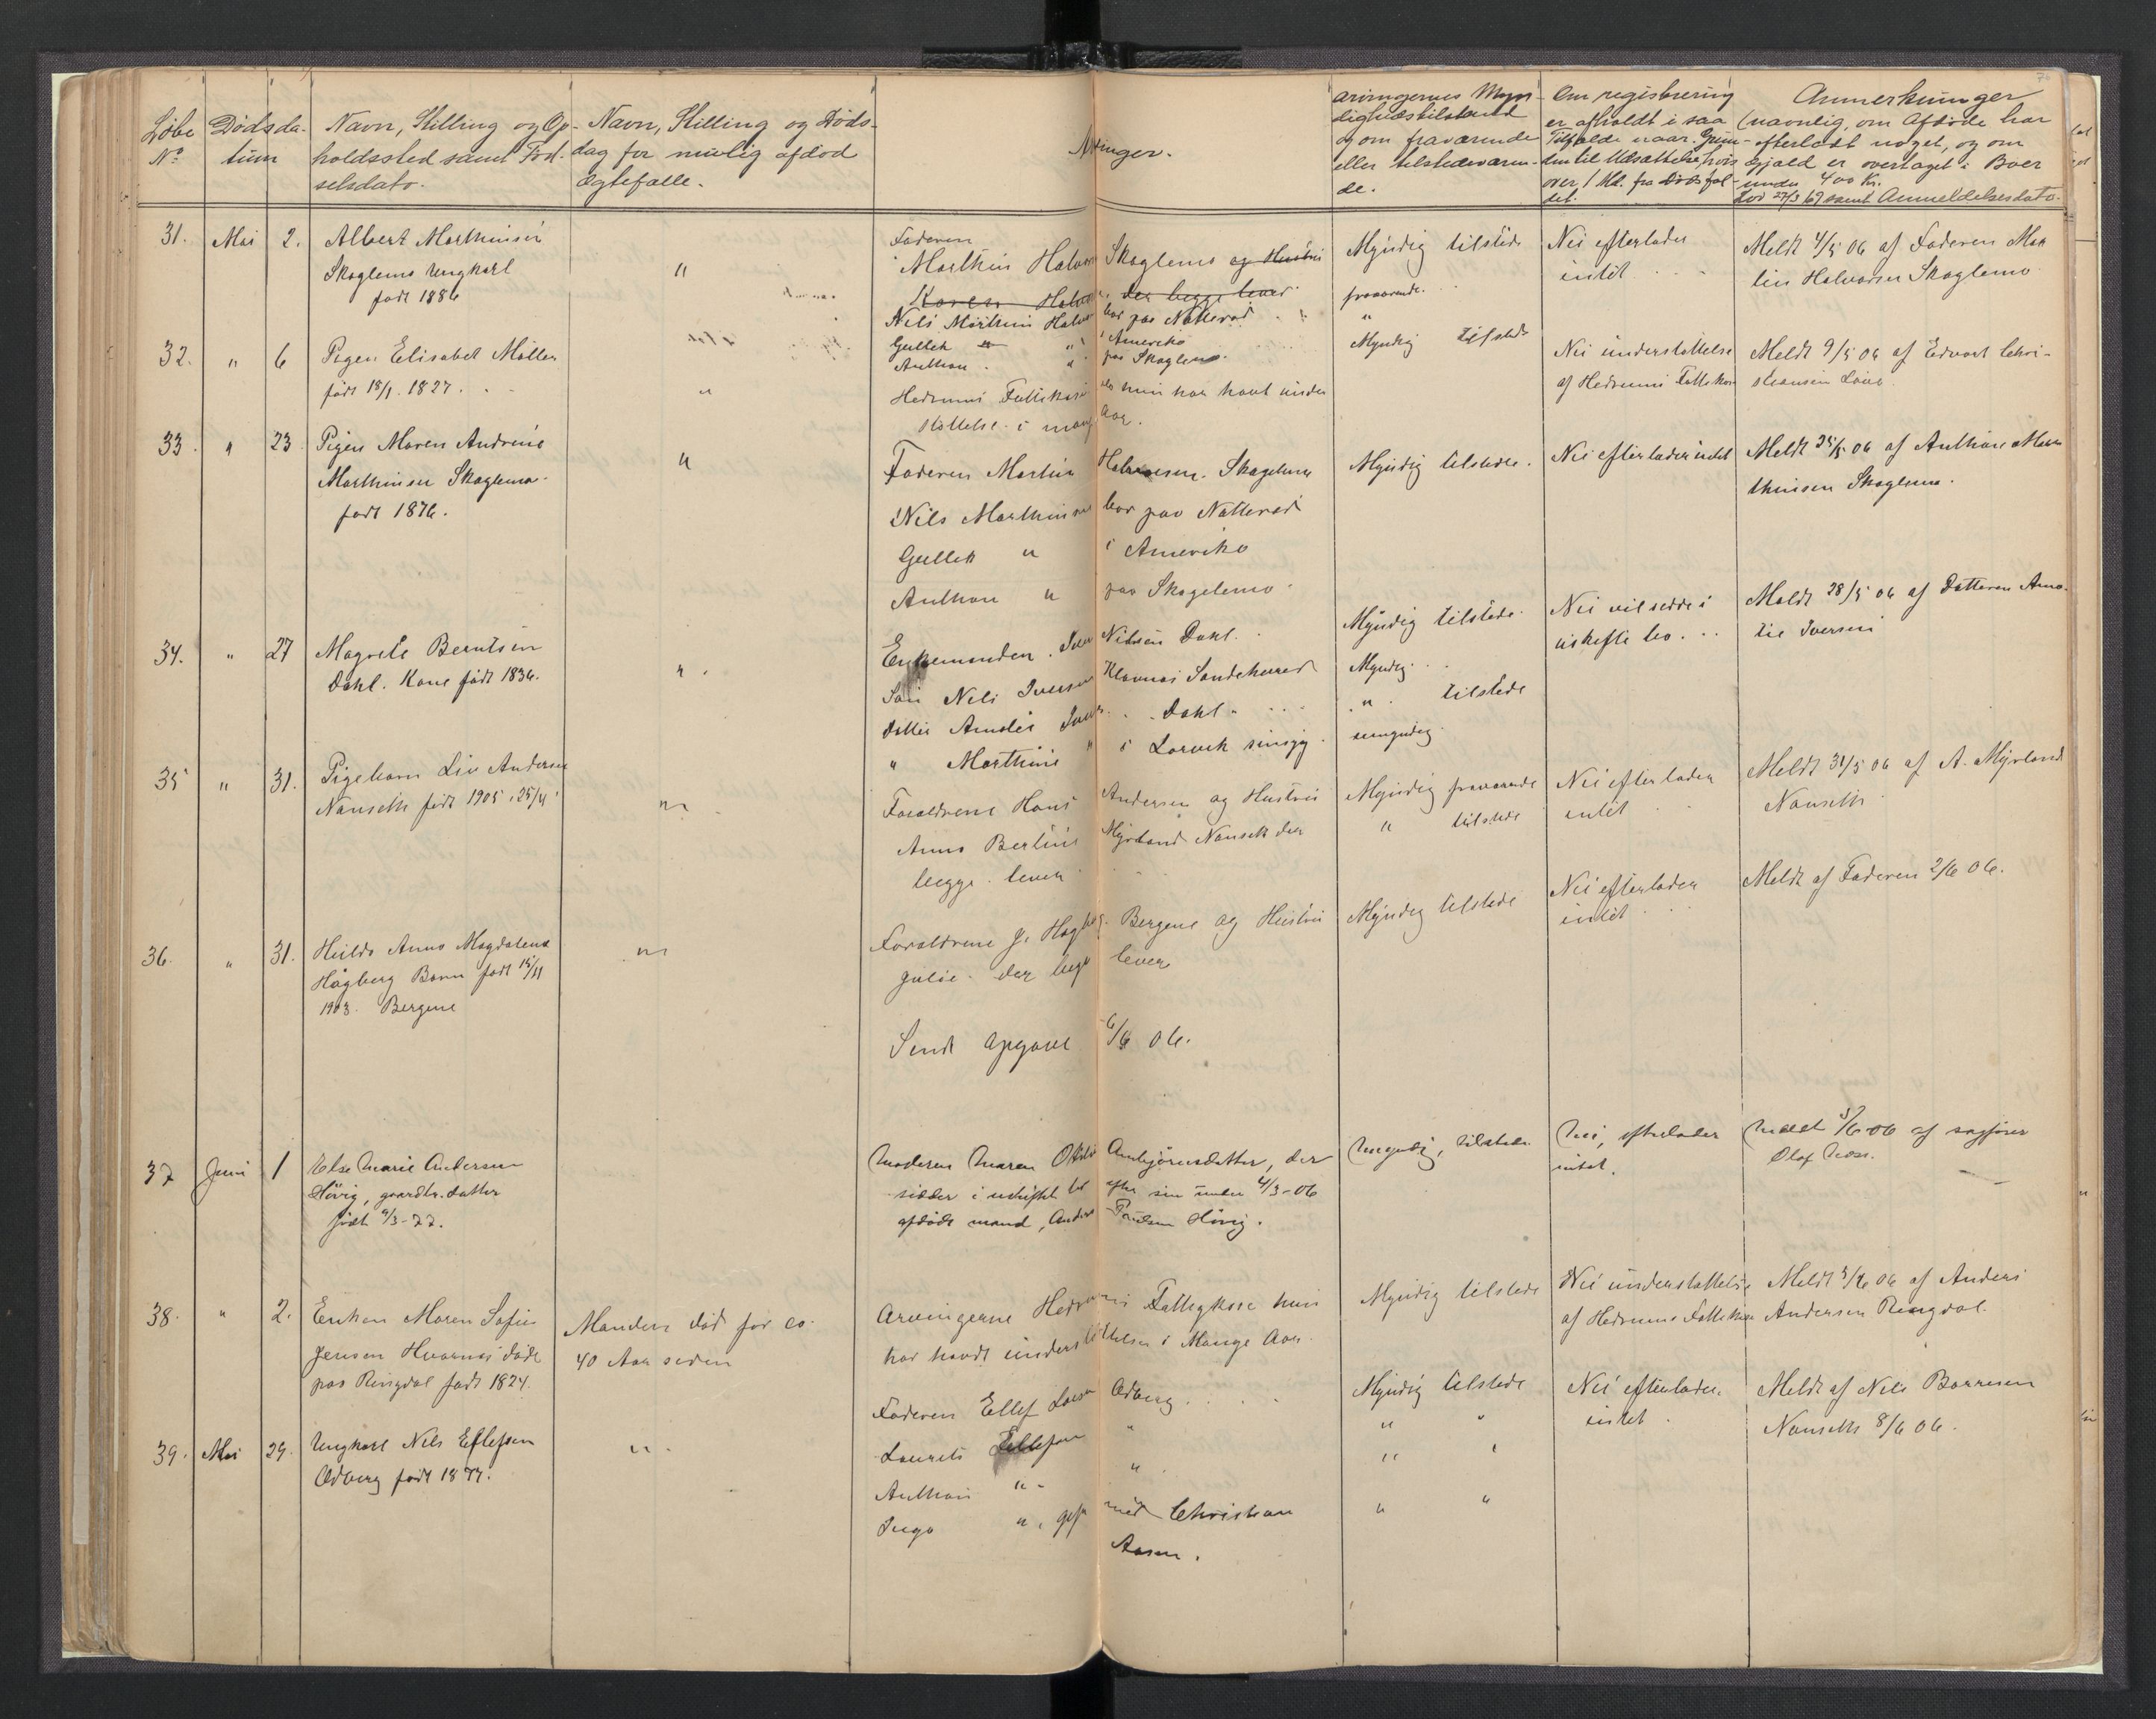 Løbe No
Dødsda-
tum
Navn, Stilling og Op-
holdssted samt Fød-
selsdato.
Navn, Stilling og Døds-
dag for mulig afdød
Ægtefælle.
Arvinger.
Arvingernes Myn-
dighedstilstand
og om fraværende
eller tilstedeværen-
de.
Om registrering
er afholdt i saa
Tilfælde naar. Grun-
den til Udsættelse, hvis
over 1 Md. fra Dødsfal-
det.
Anmerkninger
(navnlig, om Afdøde har
efterladt noget, og om
Gjæld er overtaget i Boer
under 400 Kr.
Lov 27/3 69 samt Anmeldelsesdato.
31. Mai 2. Albert Marthinsen
Skaglemo Ungkarl
født 1886
"
Faderen
Marthin Halvorsen Skaglemo og Hustru
Karen Halvorsen der begge lever
Nils Marthin Halvorsen bor paa Natterød
Gullek " i Ameriko
Anthon " paa Skaglemo
Myndig tilstede
fraværende.
"
Myndig tilstede
Nei efterlader
intet
Meldt 4/5 06 af Faderen Mar
tin Halvorsen Skaglemo
32. " 6 Pigen Elisabet Møller
født 18/1. 1827.
"
Hedrums Fattikasse der hun har havt under
støttelse i mange Aar.
Nei understøttelse
af Hedrums Fattikasse
Meldt 9/5 06 af Edvart Chri-
stiansen
33. " 23 Pigen Maren Andrine
Marthinsen Skaglemo.
født 1876.
"
Faderen Martin Halvorsen. Skagelemo
Nils Marthinsen bor paa Natterød
Gullek " i Ameriko
Anthon " paa Skagelemo
Myndig tilstede.
Nei efterlader intet
Meldt 25/5 06 af Anthon Mar
thinsen Skaglemo.
34. " 27 Magrete Berntsen
Dahl. Kone født 1836.
"
Enkemanden. Iver Nilsen Dahl.
Søn Nils Iversen Klavnæs Sandeherred
Datter Amalie Iversen Dahl
" Marthine " i Larvik sinsyg.
Myndig tilstede
Myndig.
" tilstede
umyndig
Nei vil sidde i
uskifte bo.
Meldt 28/5 06 af Datteren Ama-
lie Iversen
35 " 31. Pigebarn Liv Andersen
Nanseth født 1905, 25/4
"
Forældrene Hans Andersen og Hustru
Anna Bertine Myrland Nanseth der
begge lever
Myndig fraværende
" tilstede
Nei efterlader
intet
Meldt 31/5 06 af A. Myrland
Nanseth
36. " 31. Hilda Anna Magdalena
Hågberg Barn født 15/11
1903. Bergene
"
Forældrene J. Hagberg. Bergene og Hustru
Julie. der begge lever
Myndig tilstede
Nei efterlader
intet
Meldt af Faderen 2/6 06.
Sendt Opgave 6/6 06.
37 Juni 1 Else Marie Andersen
Hövig, gaardbr. datter
født 9/3-77.
Moderen Maren Otilie Arnbjörnsdatter, der
sidder i uskiftet bo efter sin under 4/3-06
afdöde mand, Anders Paulsen Hövig.
Myndig, tilstede
Nei, efterlader
intet.
Meldt 5/6-06 af sagförer
Olaf Moss.
38. " 2. Enken Maren Sofie
Jensen Hvarnæs døde
paa Ringdal født 1824.
Manden død for ca.
40 Aar siden
Arvingerne Hedrums Fattigkasse hun
har havdt understøttelse i Mange Aar.
Myndig tilstede
Nei understøttelse
af Hedrums Fattikasse
Meldt 5/6 06 af Anders
Andersen Ringdal.
39. Mai 29. Ungkarl Nils Ellefsen
Odberg født 1877.
"
Faderen Ellef Larsen Odberg
Laurits Ellefsen "
Anthon " "
Inga ", gift med Christian
Aasen.
Myndig tilstede
" "
" "
" "
Nei efterlader
intet
Meldt af Nils Borresen
Nanseth 8/6 06.